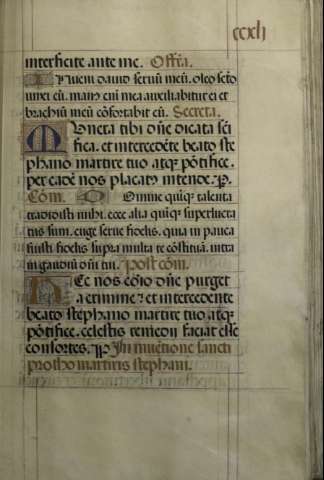 ccxli
interficite ante me. Offa.
Inueni dauid seruū meū. oleo scto
unxi eū. man' eni mea auxiliabitur ei et
brachiū meū cōfortabit eū. Secreta.
Munera tibi dn̄e dicata sc̄i
fica. et intercedēte beato ste
phano martire tuo atq; pōtifice.
per eadē nos placat' intende. P.
Cōm. Domine quīq; talenta
tradidisti mihi. ecce alia quīq; superlucra
tus sum. euge serue fidelis. quia in pauca
fuisti fidelis supra multa te cōstituā. intra
in gaudiū dn̄i tui. Post cōm.
Hec nos cōio dn̄e purget
a crimine: et intercedente
beato stephano martire tuo. atq;
pōtifice. celestis remedii faciat esse
consortes. P In inuētione sancti
protho martiris stephani.